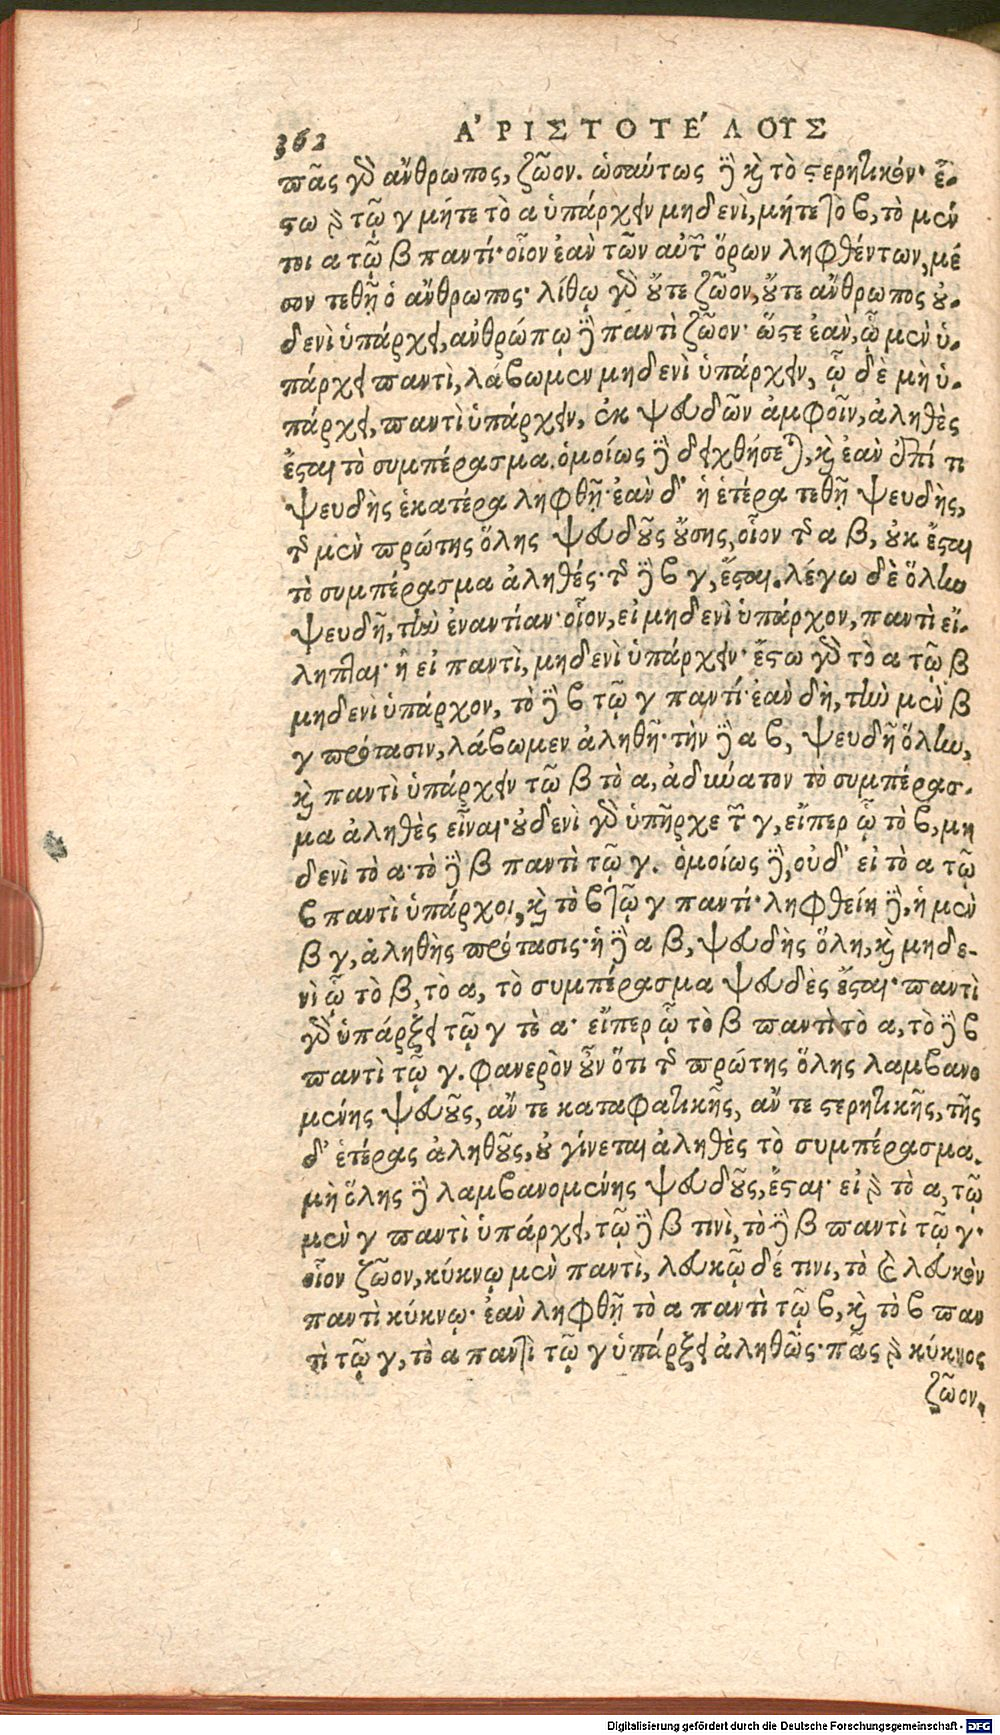 362 Α᾿ΡΙΣΤΟΤΕ´ΛΟΥΣ
πᾶς γὰρ ἄνθρωπος, ζῶον. ὡσαύτως δὲ καὶ τὸ στερητικόν· ἔ-
στω γὰρ τῷ γ μήτε τὸ α ὑπάρχειν μηδενὶ, μήτε τὸ β, τὸ μέν
τοι α τῷ β παντί· οἷον ἐὰν τῶν αὐτῶν ὅρων ληφθέντων, μέ
σον τεθῇ ὁ ἄνθρωπος· λίθῳ γὰρ οὔτε ζῶον, οὔτε ἄνθρωπος οὐ-
δενὶ ὑπάρχει, ἀνθρώπῳ δὲ παντὶ ζῶον· ὥστε ἐὰν, ᾧ μὲν ὑ-
πάρχει παντὶ, λάβωμεν μηδενὶ ὑπάρχειν, ᾧ δὲ μὴ ὑ-
πάρχει, παντὶ ὑπάρχειν, ἐκ ψευδῶν ἀμφοῖν, ἀληθὲς
ἔσται τὸ συμπέρασμα. ὁμοίως δὲ δειχθήσεται, καὶ ἐὰν ἐπί τι
ψευδὴς ἑκατέρα ληφθῇ· ἐὰν δ' ἡ ἑτέρα τεθῇ ψευδὴς,
τῆς μὲν πρώτης ὅλης ψευδοῦς οὔσης, οἷον τῆς α β, οὐκ ἔσται
τὸ συμπέρασμα ἀληθές· τῆς δὲ β γ, ἔσται. λέγω δὲ ὅλην
ψευδῆ, τὴν ἐναντίαν· οἷον, εἰ μηδενὶ ὑπάρχον, παντὶ εἴ-
ληπται· ἢ εἰ παντὶ, μηδενὶ ὑπάρχειν· ἔστω γὰρ τὸ α τῷ β
μηδενὶ ὑπάρχον, τὸ δὲ β τῷ γ παντί· ἐὰν δὴ, τὴν μὲν β
γ πρότασιν, λάβωμεν ἀληθῆ· τὴν δὲ α β, ψευδῆ ὅλην,
καὶ παντὶ ὑπάρχειν τῷ β τὸ α, ἀδύνατον τὸ συμπέρασ-
μα ἀληθὲς εἶναι· οὐδενὶ γὰρ ὑπῆρχε τῶν γ, εἴπερ ᾧ τὸ β, μη
δενὶ τὸ α· τὸ δὲ β παντὶ τῷ γ. ὁμοίως δὲ, οὐδ' εἰ τὸ α τῷ
β παντὶ ὑπάρχοι, καὶ τὸ β τῷ γ παντί· ληφθείη δὲ, ἡ μὲν
β γ, ἀληθὴς πρότασις· ἡ δὲ α β, ψευδὴς ὅλη, καὶ μηδε-
νὶ ᾧ τὸ β, τὸ α, τὸ συμπέρασμα ψευδὲς ἔσται· παντὶ
γὰρ ὑπάρξει τῷ γ τὸ α· εἴπερ ᾧ τὸ β παντὶ τὸ α, τὸ δὲ β
παντὶ τῷ γ. φανερὸν οὖν ὅτι τῆς πρώτης ὅλης λαμβανο
μένης ψευδοῦς, ἄν τε καταφατικῆς, ἄν τε στερητικῆς, τῆς
δ' ἑτέρας ἀληθοῦς, οὐ γίνεται ἀληθὲς τὸ συμπέρασμα.
μὴ ὅλης δὲ λαμβανομένης ψευδοῦς, ἔσται· εἰ γὰρ τὸ α, τῷ
μὲν γ παντὶ ὑπάρχει, τῷ δὲ β τινὶ, τὸ δὲ β παντὶ τῷ γ·
οἷον ζῶον, κύκνῳ μὲν παντὶ, λευκῷ δέ τινι, τὸ δὲ λευκὸν
παντὶ κύκνῳ· ἐὰν ληφθῇ τὸ α παντὶ τῷ β, καὶ τὸ β παν
τὶ τῷ γ, τὸ α παντὶ τῷ γ ὑπάρξει ἀληθῶς· πᾶς γὰρ κύκνος
ζῶον.
Digitalisierung gefördert durch die Deutsche Forschungsgemeinschaft - DFG